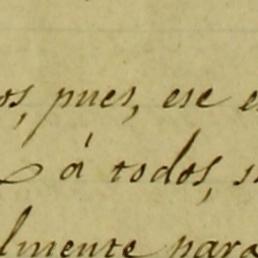 os, pues, ese e
á todos, s
lmente para